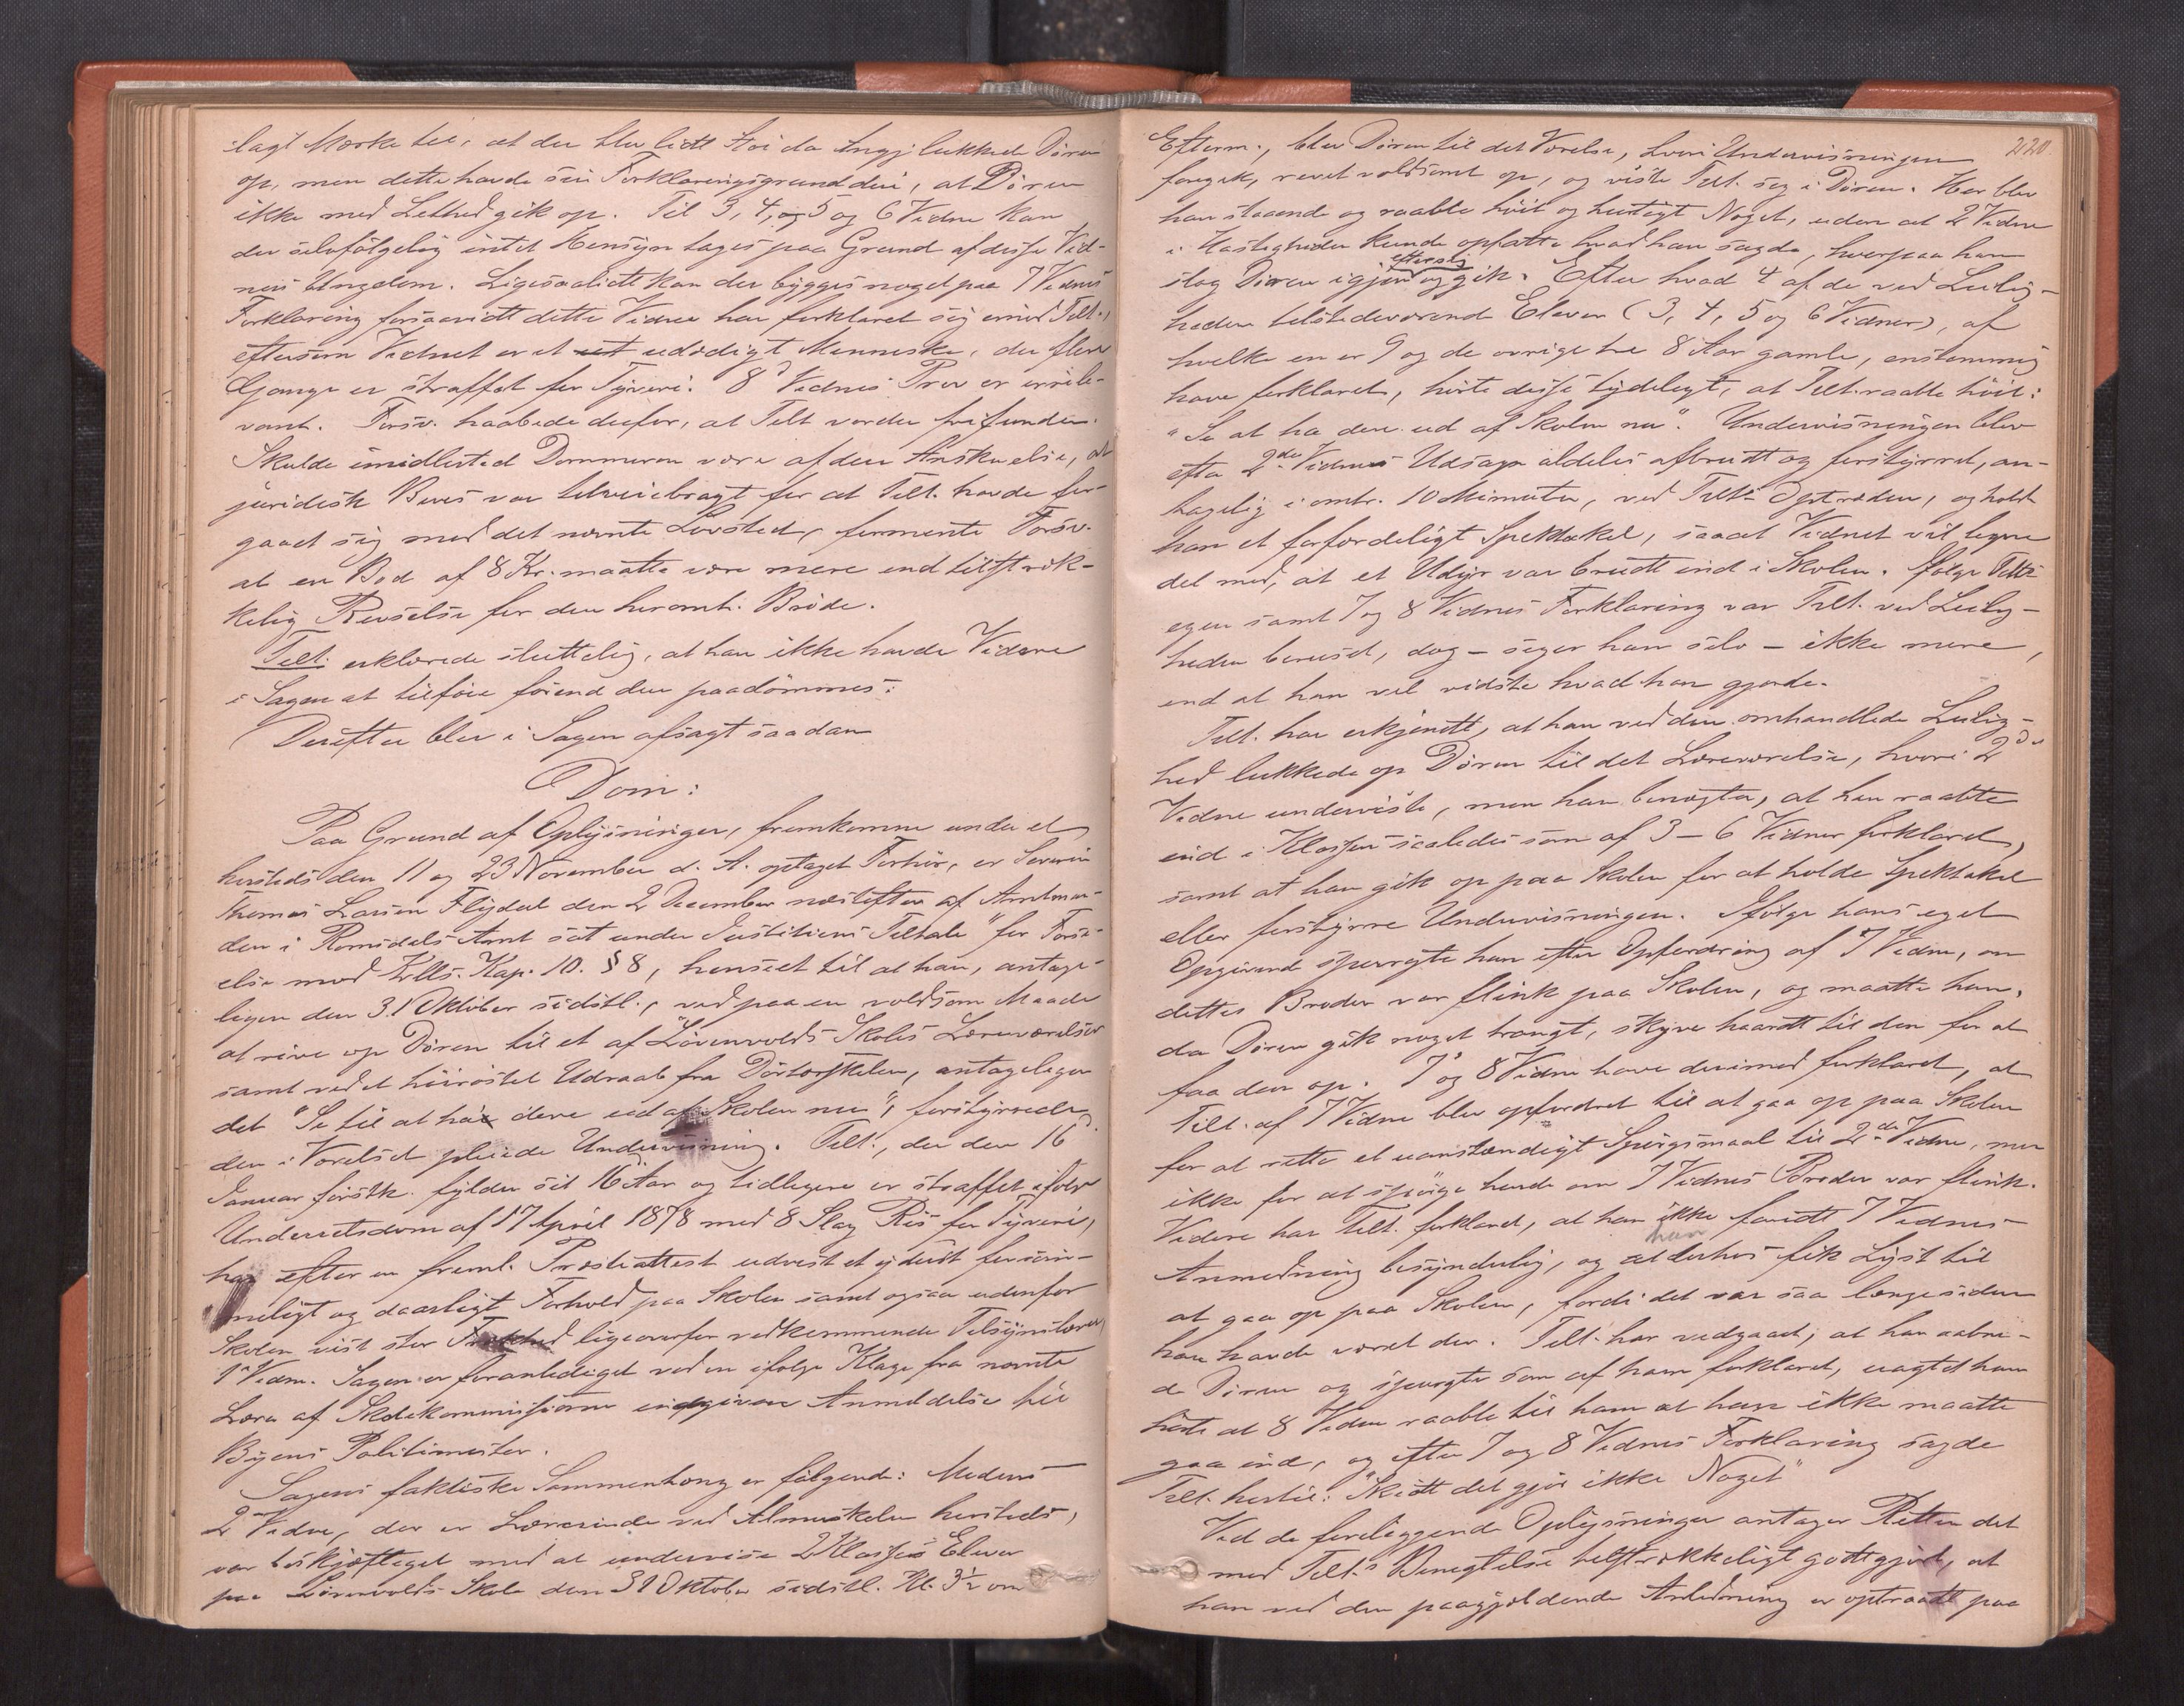 lagt Mærke til, at der blev lidt Støi da Ingj lukkede Døren
op, men dette havde sin Forklaringsgrund deri, at Døren
ikke med Lethed gik op. Til 3, 4, og 5 og 6 Vidne kan
der selvfølgelig intet Hensyn tages paa Grund af disse Vid-
ners Ungdom. Ligesaalidt kan der bygges noget paa 7 Vidnes
Forklaring forsaavidt dette Vidne har forklaret sig imod Tilt.,
eftersom Vidnet er et udydigt Menneske, der flere
Gange er straffet for Tyveri. 8d Vidnes Prov er irrele-
vant. Forsv. haabede derfor, at Tilt vorder frifunden.
Skulde imidlertid Dommeren være af den Anskuelse, at
juridisk Bevis var tilveiebragt for at Tilt. havde for-
gaaet sig mod det nævnte Lovsted, formente Forsv.
at en Bod af 8 Kr. maatte være mere end tilstræk-
kelig Revselse for den heromh. Brøde.
Tilt. erklærede sluttelig, at han ikke havde Videre
i Sagen at tilføie førend den paadømmes.
Derefter blev i Sagen afsagt saadan
Dom:
Paa Grund af Oplysninger, fremkomne under et
hersteds den 11 og 23 November d. A. optaget Forhør, er Severin
Thomas Larsen Flydal den 2 December næstefter af Amtman-
den i Romsdals Amt sat under Justitiens Tiltale "for Forse-
else mod Krlls. Kap. 10. § 8, henseet til at han, antage-
ligen den 31 Oktober sidstl., ved paa en voldsom Maade
at rive op Døren til et af Løvenvolds Skoles Læreværelser
samt ved et høirøstet Udraab fra Dørtærskelen, antageligen
det "Se til at ha dere ud af Skolen nu", forstyrrede
den i Værelset pleiede Undervisning. Tilt., der den 16d
Januar førstk. fylder sit 16 Aar og tidligere er straffet ifølge
Underretsdom af 17 April 1878 med 8 Slag Ris for Tyveri,
har efter en freml. Præsteattest udvist et yderst forsøm-
meligt og daarligt Forhold paa Skolen samt ogsaa udenfor
Skolen vist stor Frækhed ligeoverfor vedkommende Tilsynslærer,
1ste Vidne. Sagen er foranlediget ved en ifølge Klage fra nævnte
Lærer af Skolekommissionen indgiven Anmeldelse til
Byens Politimester.
Sagens faktiske Sammenhæng er følgende: Medens
2det Vidne, der er Lærerinde ved Almueskolen hersteds,
var beskjæftiget med at undervise 2 Klasses Elever
paa Løvenvolds Skole den 31 Oktober sidstl. Kl. 3½ om
220.
Efterm., blev Døren til det Værelse, hvori Undervisningen
foregik, revet voldsomt op, og viste Tilt. sig i Døren. Her blev
han staaende og raabte høit og hurtigt Noget, uden at 2 Vidne
i Hastigheden kunde opfatte hvad han sagde, hvorpaa han
slog Døren igjen og gik. Efter hvad 4 af de ved Leilig-
heden tilstedeværende Elever (3, 4, 5 og 6 Vidner), af
hvilke en er 9 og de øvrige tre 8 Aar gamle, enstemmig
have forklaret, hørte disse tydeligt, at Tilt. raabte høit:
"Se at ha dere ud af Skolen nu". Undervisningen blev
efter 2det Vidnes Udsagn aldeles afbrudt og forstyrret, an-
tagelig i omtr. 10 Minuter, ved Tilts Optræden, og holdt
han et forfærdeligt Spektakel, saaat Vidnet vil ligne
det med, at et Udyr var brudt ind i Skolen. Ifølge Tilts
egen samt 7 og 8 Vidnes Forklaring var Tilt. ved Leilig-
heden beruset, dog – siger han selv – ikke mere,
end at han vel vidste hvad han gjorde.
Tilt. har erkjendt, at han ved den omhandlede Leilig-
hed lukkede op Døren til det Læreværelse, hvori 2det
Vidne underviste, men han benægter, at han raabte
ind i Klassen saaledes som af 3 – 6 Vidner forklaret,
samt at han gik op paa Skolen for at holde Spektakel
eller forstyrre Undervisningen. Ifølge hans eget
Opgivende spurgte han efter Opfordring af 7 Vidne, om
dettes Broder var flink paa Skolen, og maatte han,
da Døren gik noget trangt, skyve haardt til den for at
faa den op. 7 og 8 Vidne have derimod forklaret, at
Tilt. af 7 Vidne blev opfordret til at gaa op paa Skolen
for at rette et uanstændigt Spørgsmaal til 2det Vidne, men
ikke for at spørge hende om 7 Vidnes Broder var flink.
Videre har Tilt. forklaret, at han ikke fandt 7 Vidnes
Anmodning besynderlig, og at han derhos fik Lyst til
at gaa op paa Skolen, fordi det var saa længe siden
han havde været der. Tilt. har vedgaaet, at han aabne-
de Døren og spurgte som af ham forklaret, uagtet han
hørte at 8 Vidne raabte til ham at han ikke maatte
gaa ind, og efter 7 og 8 Vidnes Forklaring sagde
Tilt. hertil: "Skidt det gjør ikke Noget"
Ved de foreliggende Oplysninger antager Retten det
mod Tilt.s Benegtelse tilstrækkeligt godtgjort, at
han ved den paagjældende Anledning er optraadt paa